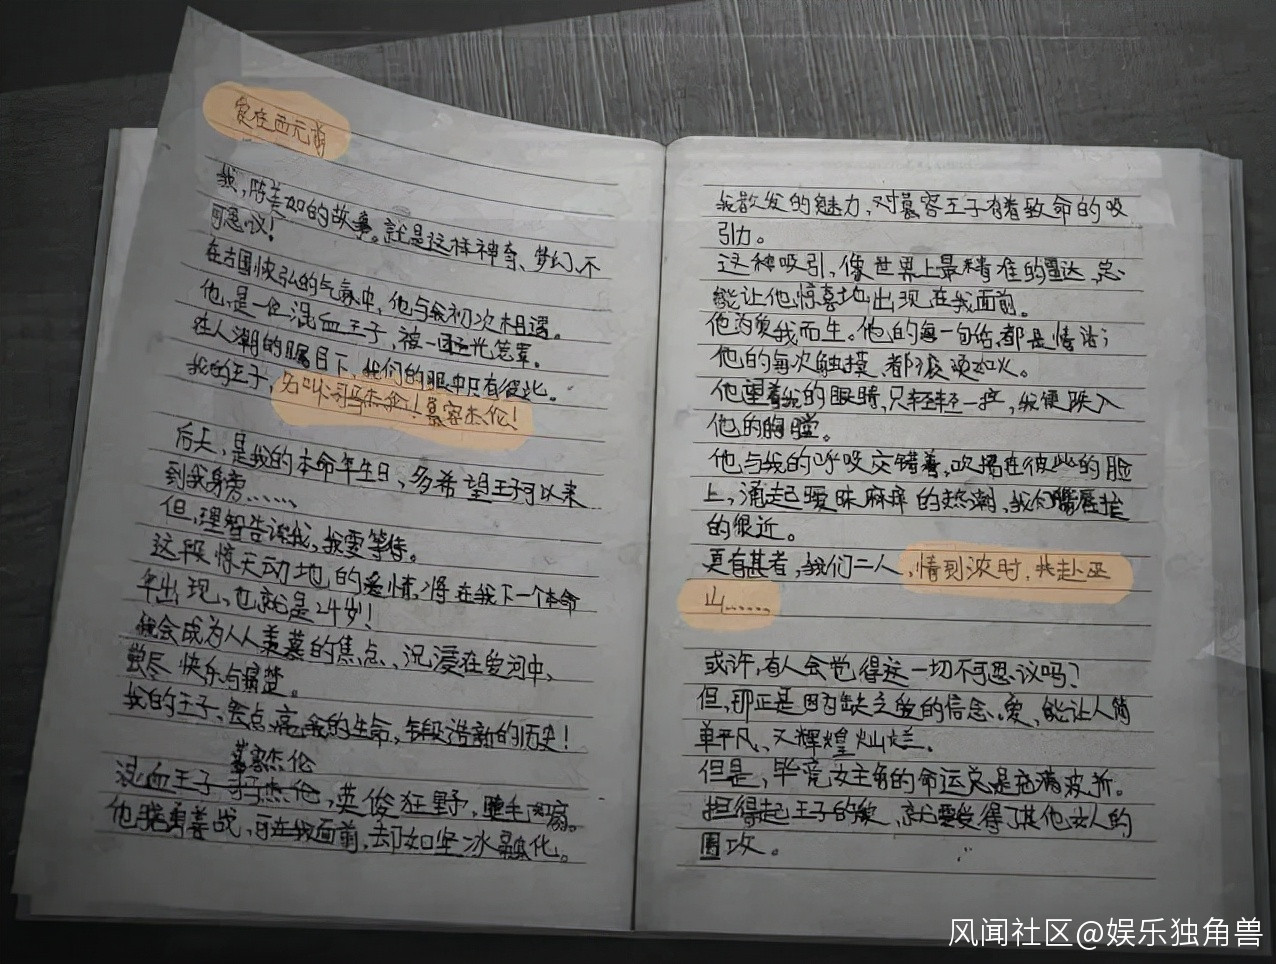 爱在西元前
我,陈美如的故事。就是这样神奇、梦幻、不
可思议!
在古国恢弘的气氛中,他与我初次相遇。
他,是一位混血王子,被一团光笼罩。
在人潮的瞩目下,我们的眼中只有彼此。
我的王子,名叫 杰伦!慕容杰伦!
后天,是我的本命年生日,多希望王子可以来
到我身旁……
但,理智告诉我,我要等待。
这段惊天动地的爱情,将在我下一个本命
年出现,也就是24岁!
我会成为人人羡慕的焦点、沉浸在爱河中,
尝尽快乐与痛楚。
我的王子、会点亮我的生命,缔造新的历史!
慕容杰伦
混血王子 杰伦,英俊狂野,
他骁勇善战,可在我面前,却如坚冰融化。
我散发的魅力,对慕容王子有着致命的吸
引力。
这种吸引,像世界上最精准的雷达,总
能让他惊喜地出现在我面前。
他为我而生。他的每一句话,都是情话;
他的每次触摸,都滚烫如火。
他望着我的眼睛,只轻轻一 ,我便跌入
他的胸膛。
他与我的呼吸交错着,吹拂在彼此的脸
上,涌起暧昧麻痒的热潮,我们嘴唇挨
的很近。
更有甚者,我们二人,情到浓时,共赴巫
山……
或许,有人会觉得这一切不可思议吗?
但,那正是因为缺乏爱的信念。爱,能让人简
单平凡、又辉煌灿烂。
但是,毕竟女主角的命运总是充满波折。
担得起王子的爱,就要受得了其他女人的
围攻。
风闻社区@娱乐独角兽